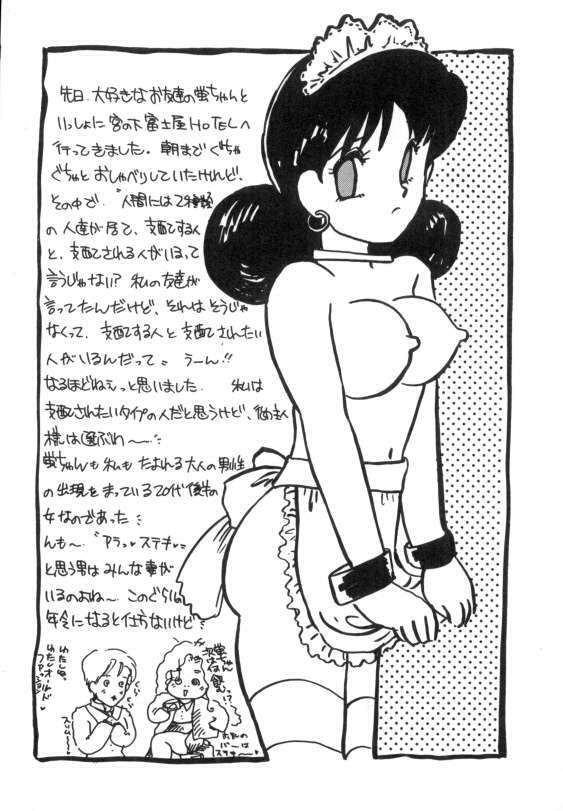 先日、大好きなお友達の蛍ちゃんと
いっしょに宮の下富士屋HOTELへ
行ってきました。朝までぐちゃ
ぐちゃとおしゃべりしていたけれど、
その中で、"人間には2種類
の人達が居て、支配する人
と、支配される人がいるって
言うじゃない? 私の友達が
言ってたんだけど、それはそうじゃ
なくって、支配する人と支配されたい
人がいるんだって。 うーん!!
なるほどねぇっと思いました。 私は
支配されたいタイプの人だと思うけど、御主人
様は選ぶわ〜
蛍ちゃんも私もたよれる大人の男性
の出現をまっている20代後半の
女なのであった
んも〜"アラッステキ"
と思う男はみんな妻が
いるのよね〜 このぐらいの
年令になると仕方ないけど